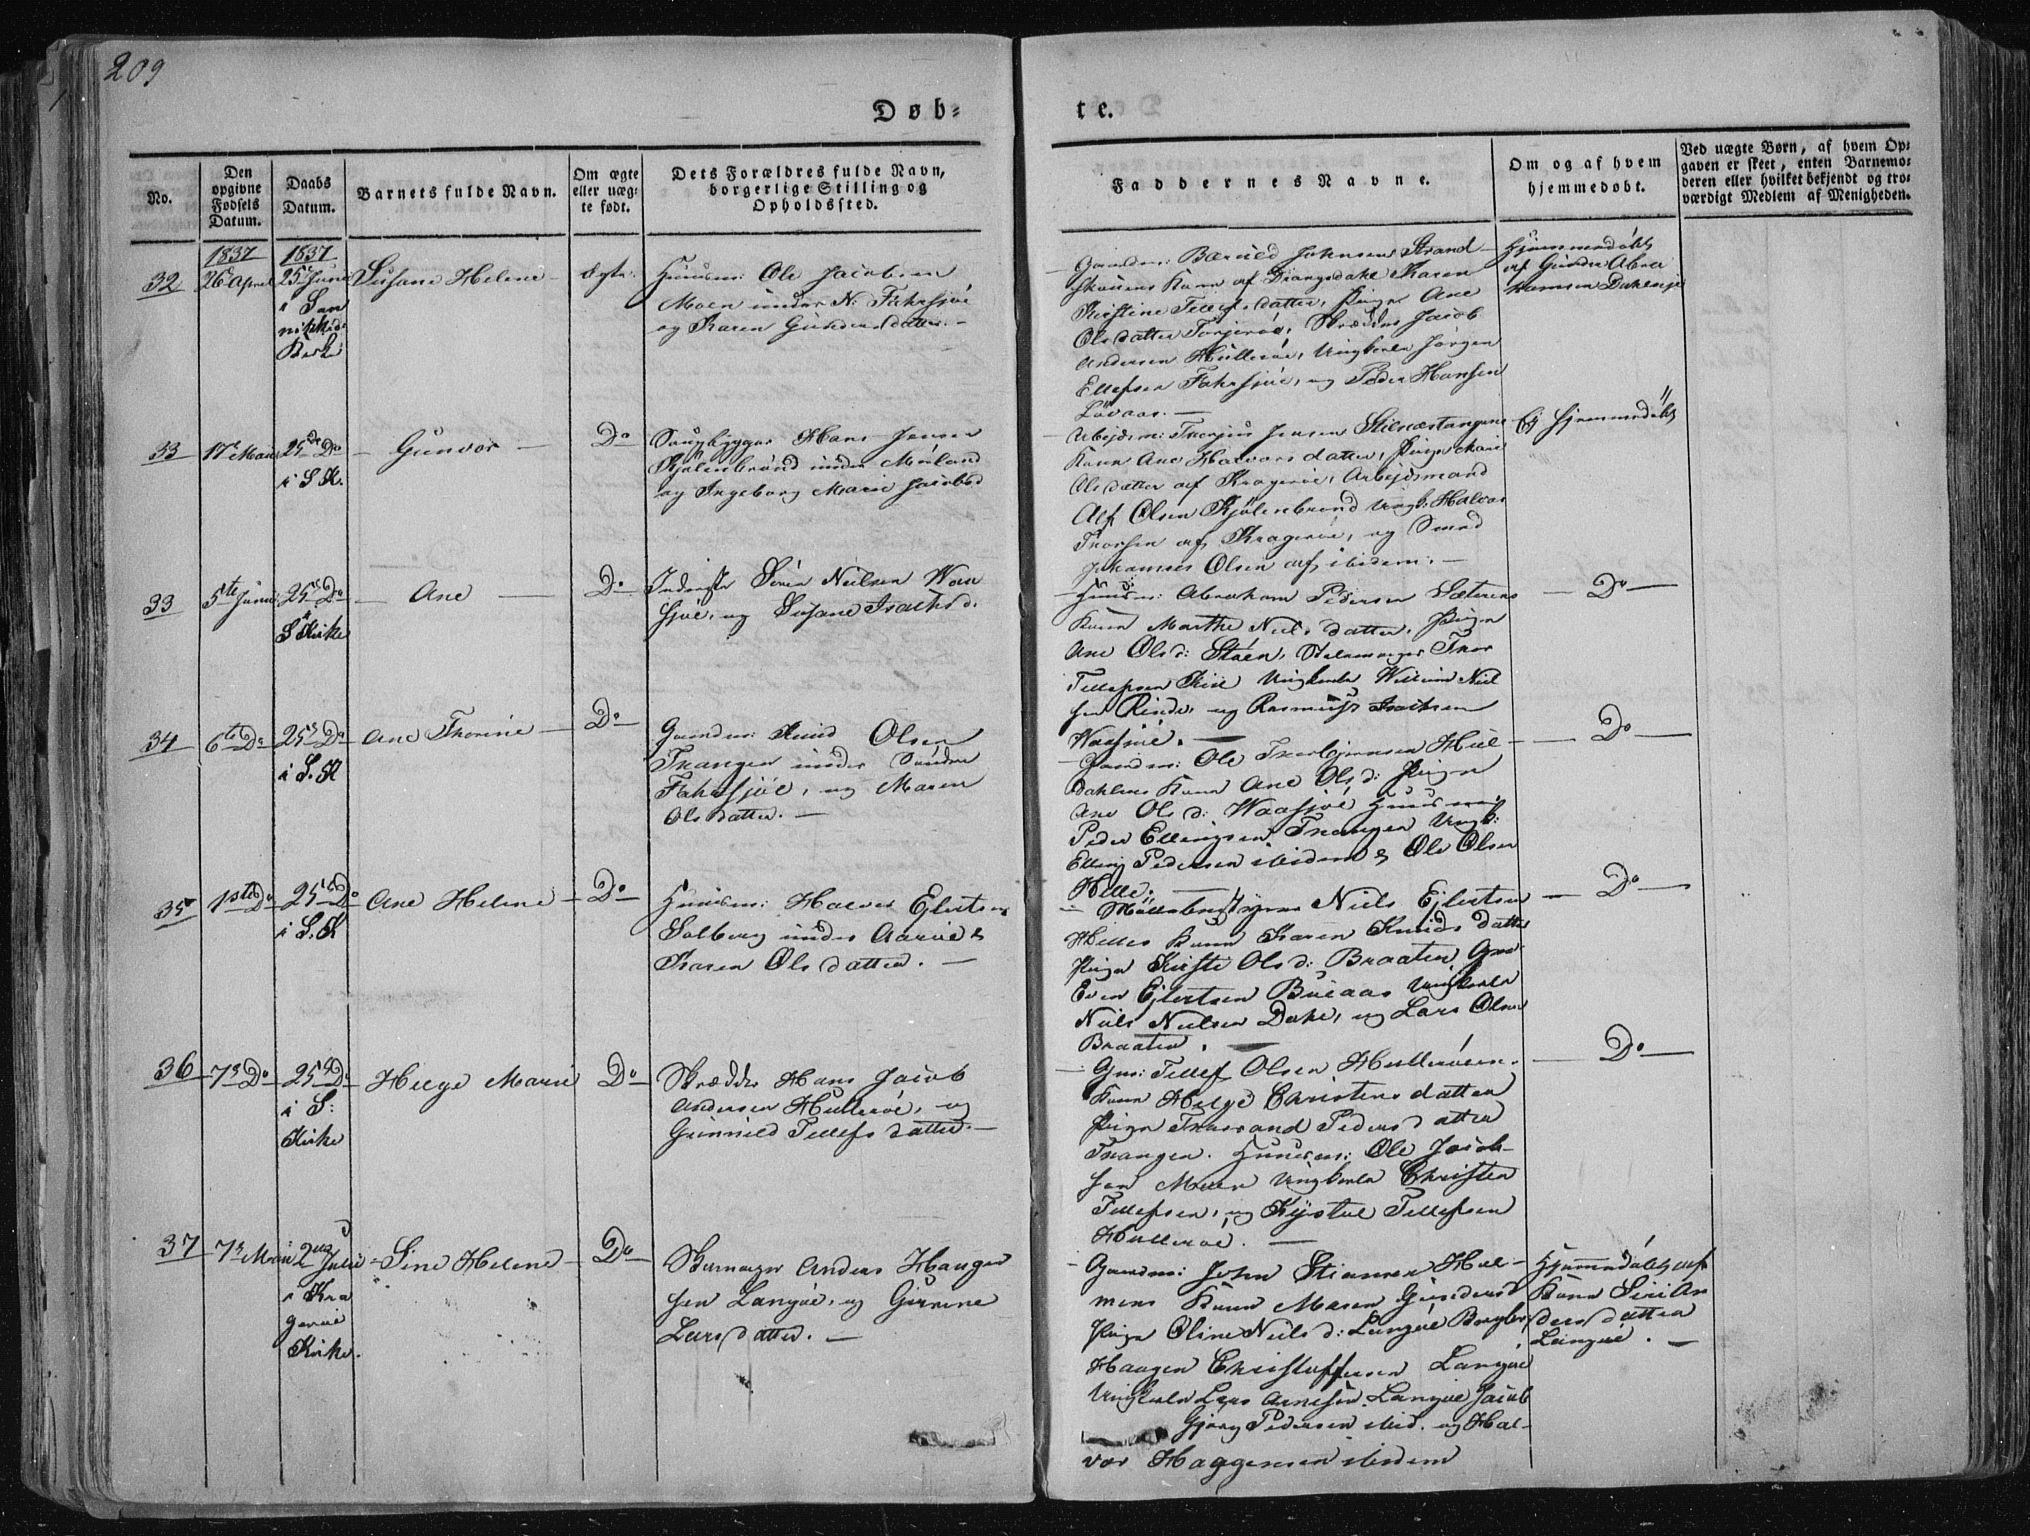 209
Døb-
te.
No.
Den opgivne Fødsels Datum.
Daabs Datum.
Barnets fulde Navn.
Om ægte eller uæg- te født.
Dets Forældres fulde Navn, borgerlige Stilling og Opholdssted.
Faddernes Navne.
Om og af hvem hjemmedøbt.
Ved uægte Børn, af hvem Op-
gaven er skeet, enten Barnemo-
deren eller hvilket bekjendt og tro-
værdigt Medlem af Menigheden.
1837
1837
32
26 April
25 Juni
i San
Kirke
Susane Helene
ægte
Huusm: Ole Jacobsen
Moen under N. Fahrsjøe
og Karen Gundersdatter.
Gaardm: Johnsen Strand
Kone af Drangsdale Karen
Kirstine Tellefsdatter, Piger Ane
Olsdatter Torjerøe, Skrædder Jacob
Andersen Hullerøe, Ungkarle Jørgen
Ellefsen Fahrsjøe, og Peder Hansen
Løvaas.
Hjemmedøbt
af Gunder Abra
hamsen
33
17de Mai
25de Do
i S. K.
Gunvor
Do
Hans Jensen
Kjølebrønd under
og Ingeborg Marie Jacobsd
Arbejdsm: Jensen
Kone Ane Halvorsdatter, Pige Marie
Olsdatter af Kragerøe, Arbejdsmand
Alf Olsen Kjølebrønd Ungk: Halvor
af Kragerøe, og Smed
Johannes Olsen af ibidem.
Ej Hjemmedøbt
33
5te Juni
25de Do
i
S Kirke
Ane
Do
Inderste Søren Nielsen Waa
sjøe, og Susane Isachsd.
Huusm: Abraham Pedersen Sæterens
Kone Marthe Nielsdatter, Pige
Ane Olsd: Støen, Thor
Tellefsen Kiil Ungkarle William Niel
sen og Rasmus Isachsen
Waasjøe.
Do
34
6te Do
25de Do
i S. K
Ane Thorine
Do
Gaardm: Knud Olsen
Trangen under Søndre
Fahrsjøe, og Maren
Olsdatter.
Gaardm: Ole Thorbjørnsen Hul
dahlens Kone Ane Olsd: Pige
Ane Olsd: Waasjøe Huusm:
Peder Ellingsen Trangen Ungk:
Elling Pedersen ibidem & Ole Olsen
Helle.
Do
35
1ste Do
25de Do
i S. K
Ane Helene
Do
Huusm: Halvor Ejlertsen
Solberg under Aarøe &
Karen Olsdatter.
Niels Ejlertsen
Helles Kone Karen Knudsdatter
Pige Kirsti Olsd: Braaten
Even Ejlertsen Ungkarle
Niels Nielsen Dahl, og Lars Olsen
Braaten.
Do
36
7de Do
25de Do
i S:
Kirke
Helge Marie
Do
Skrædder Hans Jacob
Andersen Hullerøe, og
Gunnild Tellefsdatter.
Gm: Tellef Olsen Hullerøens
Kone Helge Christensdatter
Pige Pedersdatter
Trangen. Huusm: Ole Jacob-
sen Moen Ungkarle Christen
Tellefsen, og Kjøstel Tellefsen
Hullerøe.
Do
37
7de Mai
2den Julii
i Kra
gerøe
Kirke.
Sine Helene
Do
Anders Haagen
sen Langøe, og Gurine
Larsdatter.
Gaardm: John Stiansen Hol-
mens Kone Maren Gundersd
Pige Oline Nielsd: Langøe
Haagen Christoffersen Langøe
Ungkarle Lars Arnesen Langøe Jacob
Gjørg Pedersen ibid. og Hal-
vor Haggensen ibidem
Hjemmedøbt af
Kone Siri An
dersdatter
Langøe.